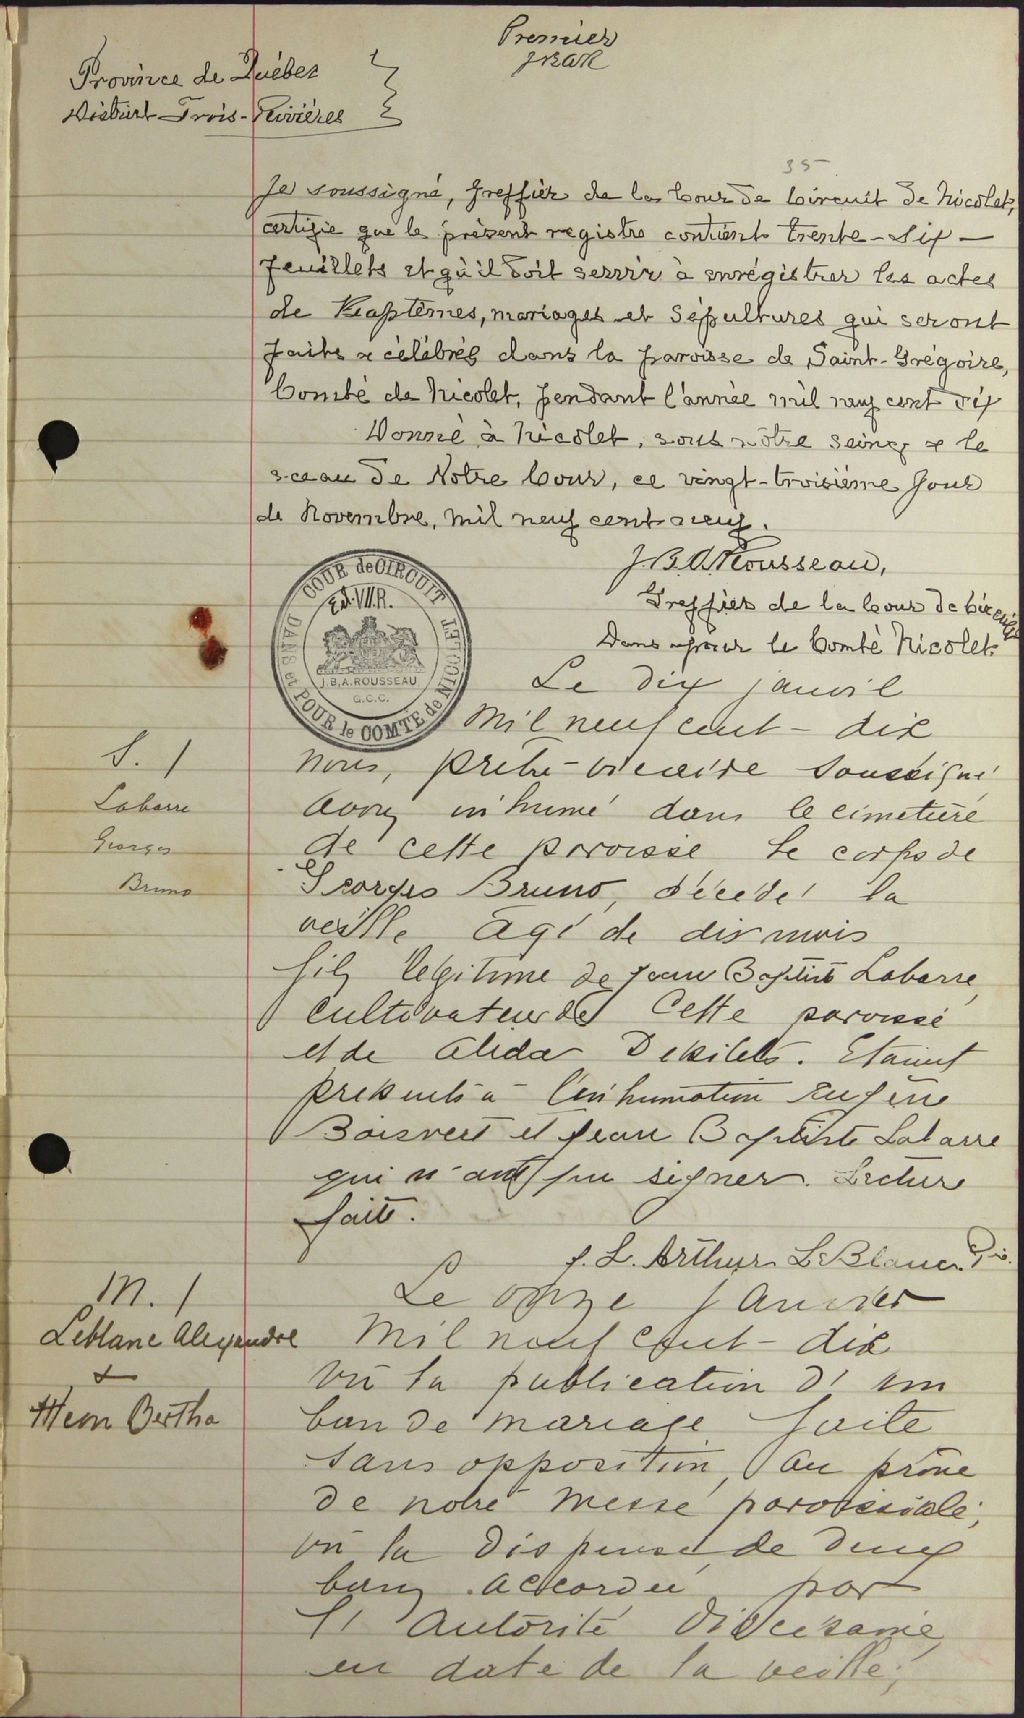 Premier
JBAR
Province de Québec
District Trois-Rivières
35
Je soussigné, Greffier de la Cour de Circuit de Nicolet,
certifie que le présent registre contient trente-six-
feuillets et qu'il doit servir à enrégistrer les actes
de Baptêmes, mariages et Sépultures qui seront
faits & célébrés dans la paroisse de Saint-Grégoire,
Comté de Nicolet, pendant l'année mil neuf cent dix
Donné à Nicolet, sous nôtre seing & le
sceau de Notre Cour, ce vingt-troisième jour
de Novembre, mil neuf cent neuf.
J.B.A. Rousseau,
Greffier de la Cour de Circuit
Dans & pour le Comté Nicolet.
COUR de CIRCUIT
DANS et POUR le COMTE de NICOLET
Ed. VII. R.
J.B.A. ROUSSEAU
G.C.C.
Le dix janvil
Mil neuf cent - dix
nous, prêtre-vicaire soussigné
avons inhumé dans le cimetière
de cette paroisse le corps de
Georges Bruno, décédé la
veille âgé de dix mois
fils légitime de Jean Baptiste Labarre,
cultivateur de cette paroisse
et de Alida Desilets. Etaient
présents à l'inhumation Eugène
Boisvert et Jean Baptiste Labarre
qui n'ont pu signer. Lecture
faite.
J. L. Arthur LeBlanc Ptre.
S. 1
Labarre
Georges
Bruno
M. 1
Leblanc Alexandre
+
Héon Bertha
Le onze janvier
Mil neuf cent - dix
vu la publication d'un
ban de mariage faite
sans opposition, au prône
de notre messe paroissiale;
vu la dispense de deux
bans accordée par
l'autorité diocésaine,
en date de la veille;